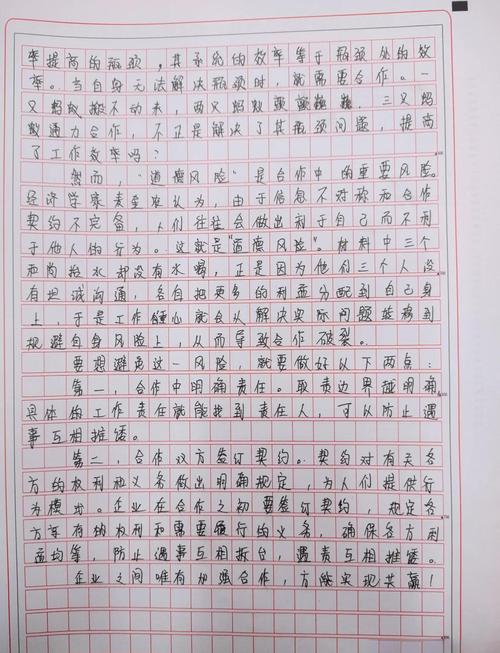 率提高的瓶颈，其系统的效率等于瓶颈处的效
率。当自身无法解决瓶颈时，就需要合作。一
只蚂蚁搬不动米，两只蚂蚁 ，三只蚂
蚁通力合作，不正是解决了其瓶颈问题，提高
了工作效率吗？
然而，"道德风险"是合作中的重要风险。
经济学家 认为，由于信息不对称和合作
契约不完备，人们往往会做出利于自己而不利
于他人的行为。这就是"道德风险"。材料中三个
和尚抬水却没有水喝，正是因为他们三个人没
有坦诚沟通，各自把更多的利益分配到自己身
上，于是工作重心就会从解决实际问题转移到
规避自身风险上，从而导致合作破裂。
要想避免这一风险，就要做好以下两点：
第一，合作中明确责任。取责边界越明确
具体的工作责任就能找到责任人，可以防止遇
事互相推诿。
第二，合作双方签订契约。契约对有关各
方的权利和义务做出明确规定，为人们提供行
为模式。企业在合作之初要签订契约，规定各
方享有的权利和需要履行的义务，确保各方利
益均等，防止遇事互相拆台，遇责互相推诿。
企业之间唯有加强合作，方能实现共赢！